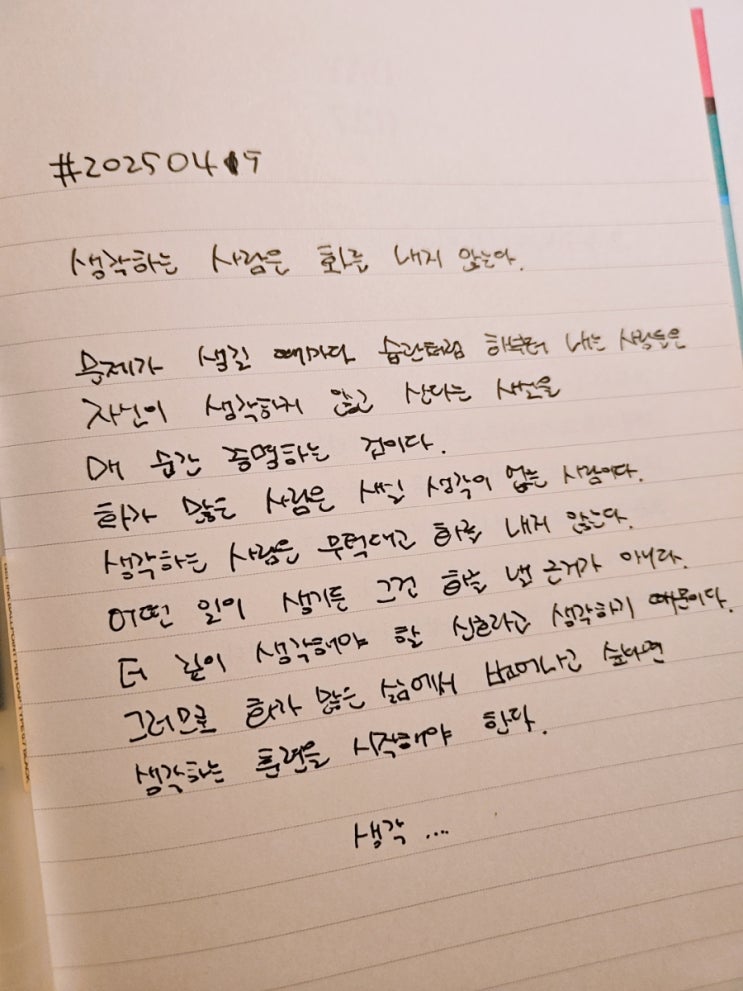 #20250419
생각하는 사람은 화를 내지 않는다.
문제가 생길 때마다 습관처럼 화부터 내는 사람들은
자신이 생각하지 않고 산다는 사실을
매 순간 증명하는 것이다.
화가 많은 사람은 사실 생각이 없는 사람이다.
생각하는 사람은 무턱대고 화를 내지 않는다.
어떤 일이 생기든 그건 화를 낼 근거가 아니다.
더 깊이 생각해야 할 신호라고 생각하기 때문이다.
그러므로 화가 많은 삶에서 벗어나고 싶다면
생각하는 훈련을 시작해야 한다.
생각 ...